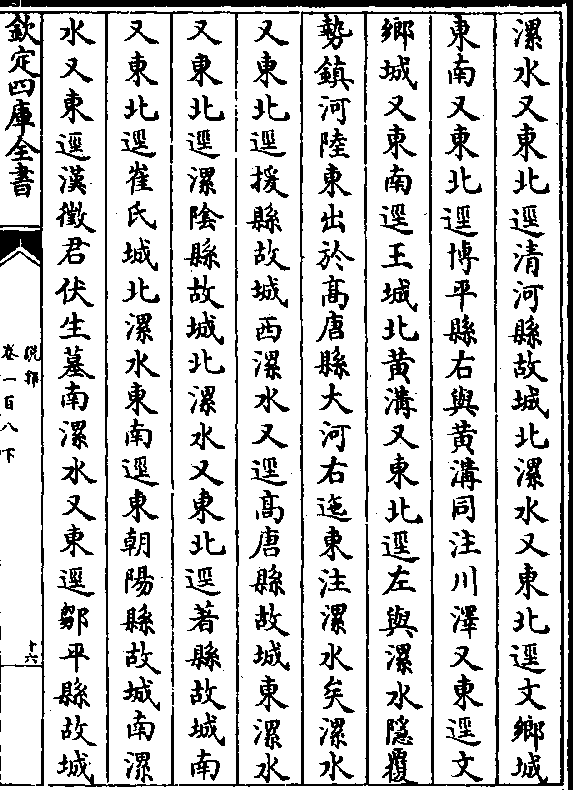 漯水又東北逕清河縣故城北漯水又東北逕文鄉城
東南又東北逕博平縣右與黃溝同注川澤又東逕文
鄉城又東南逕王城北黃溝又東北逕左與漯水隱覆
勢鎮河陸東出於髙唐縣大河右迤東注漯水矣漯水
又東北逕援縣故城西漯水又逕髙唐縣故城東漯水
又東北逕漯隂縣故城北漯水又東北逕著縣故城南
又東北逕崔氏城北漯水東南逕東朝陽縣故城南漯
水又東逕漢徵君伏生墓南漯水又東逕鄒平縣故城
欽定四庫全書
說郛
卷一百八下
十六